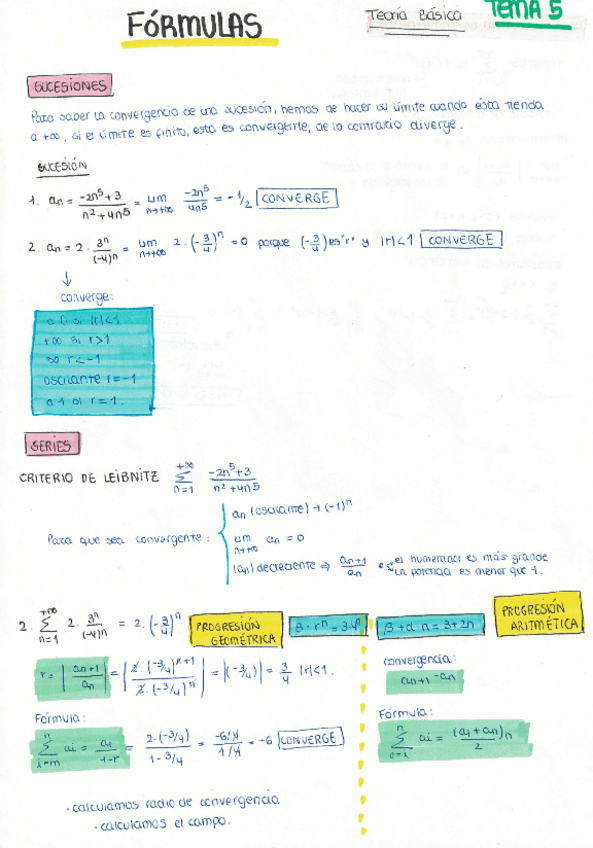 FÓRMULAS
Teoría Básica
TEMA 5
SUCESIONES
Para saber la convergencia de una sucesión, hemos de hacer su límite cuando ésta tienda
a +∞, si el límite es finito, esta es convergente, de lo contrario diverge.
SUCESIÓN
1. an = (-2n⁵+3)/(n²+4n⁵) = lim n→+∞ (-2n⁵)/(4n⁵) = -1/2 CONVERGE
2. an = 2 · 3ⁿ/(-4)ⁿ = lim n→+∞ 2 · (-3/4)ⁿ = 0 porque (-3/4) es "r" y |r|<1 CONVERGE
↓
converge:
a 0 si |r|<1
+∞ si r>1
∞ r<-1
oscilante r=-1
a 1 si r=1.
SERIES
CRITERIO DE LEIBNITZ +∞ Σ n=1 (-2n⁵+3)/(n²+4n⁵)
an (oscilante) + (-1)ⁿ
Para que sea convergente: lim n→+∞ an = 0
|an| decreciente ⇒ an+1/an
el numerador es más grande
la potencia es menor que 1.
2. +∞ Σ n=1 2 · 3ⁿ/(-4)ⁿ = 2 · (-3/4)ⁿ
PROGRESIÓN GEOMÉTRICA
B · rⁿ = 3·4ⁿ
B+d n = 3+2n
PROGRESIÓN ARITMÉTICA
r = |an+1/an| = |2·(-3/4)ⁿ⁺¹/2·(-3/4)ⁿ| = |(-3/4)| = 3/4 |r|<1.
Fórmula:
n Σ i=m ai = a1/1-r = 2·(-3/4)/1-3/4 = -6/4/1/4 = -6 CONVERGE
convergencia:
an+1 - an
Fórmula:
n Σ ai = (a1+an)n/2
· calculamos radio de convergencia
· calculamos el campo.